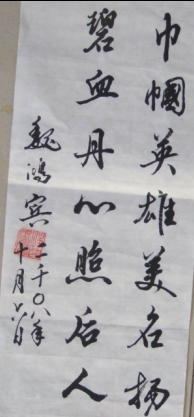 巾帼英雄美名扬
碧血丹心照后人
魏鸿宾
二千〇八年
十月六日